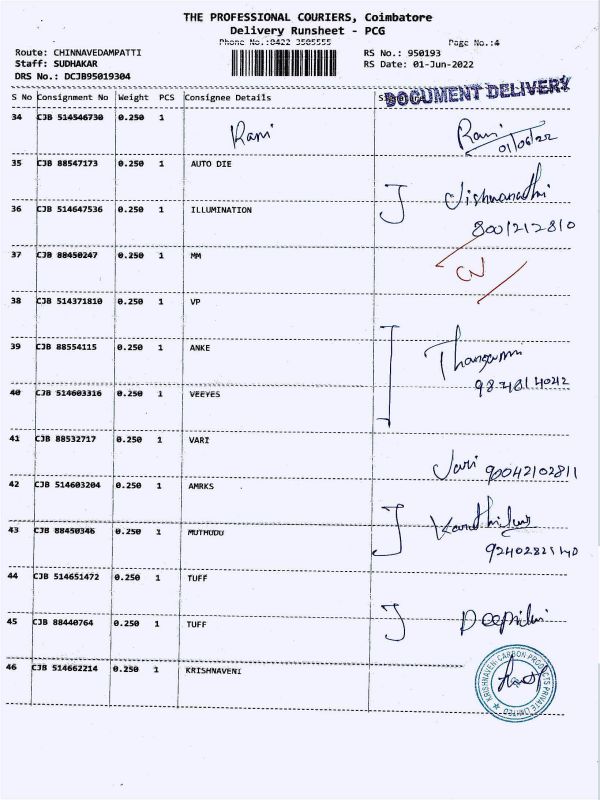 THE PROFESSIONAL COURIERS, Coimbatore
Delivery Runsheet - PCG
Phone No.:0422 3505555
Page No.:4
Route: CHINNAVEDAMPATTI
RS No.: 950193
Staff: SUDHAKAR
RS Date: 01-Jun-2022
DRS No.: DCJB95019304
DOCUMENT DELIVERY
S No Consignment No Weight PCS Consignee Details
34 CJB 514546730 0.250 1 Rani Rani
01/06/22
35 CJB 88547173 0.250 1 AUTO DIE
36 CJB 514647536 0.250 1 ILLUMINATION
8001212810
37 CJB 88450247 0.250 1 MM
CN
38 CJB 514371810 0.250 1 VP
39 CJB 88554115 0.250 1 ANKE
40 CJB 514603316 0.250 1 VEEYES
41 CJB 88532717 0.250 1 VARI
90042102811
42 CJB 514603204 0.250 1 AMRKS
43 CJB 88450346 0.250 1 MUTHUDU
44 CJB 514651472 0.250 1 TUFF
45 CJB 88440764 0.250 1 TUFF
46 CJB 514662214 0.250 1 KRISHNAVENI
KRISHNAVENI CARBON PRODUCTS PRIVATE LIMITED